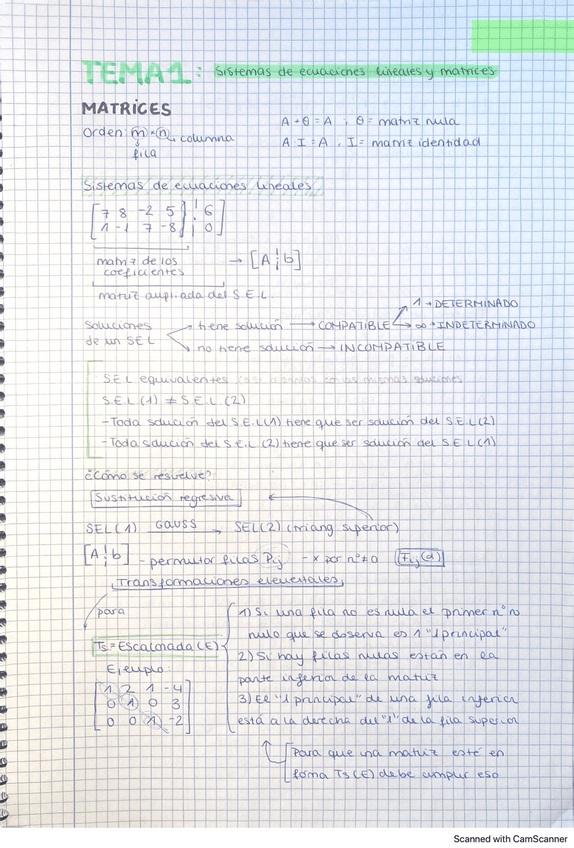 TEMA 1: Sistemas de ecuaciones lineales y matrices
MATRICES
Orden: m × n, columna
fila
A + θ = A ; θ = matriz nula
A · I = A , I = matriz identidad
Sistemas de ecuaciones lineales
7 8 -2 5 ¦ 6
1 -1 7 -8 ¦ 0
matriz de los
coeficientes
→ [A¦b]
matriz ampliada del S.E.L.
soluciones
de un SEL
tiene solución → COMPATIBLE
1 → DETERMINADO
∞ → INDETERMINADO
no tiene solución → INCOMPATIBLE
SEL equivalentes
S.E.L (1) ≠ S.E.L (2)
- Toda solución del S.E.L(1) tiene que ser solución del S.E.L(2)
- Toda solución del S.E.L (2) tiene que ser solución del S.E.L (1)
¿Cómo se resuelve?
Sustitución regresiva
SEL (1) GAUSS → SEL(2) (triang superior)
[A¦b] - permutar filas Pij - x por nº≠0 Fij(α)
Transformaciones elementales
para
Ts = Escalonada (E)
Ejemplo:
1 2 1 -4
0 1 0 3
0 0 1 -2
1) Si una fila no es nula el primer nº no
nulo que se observa es 1 "1 principal"
2) Si hay filas nulas están en la
parte inferior de la matriz
3) El "1 principal" de una fila inferior
está a la derecha del "1" de la fila superior
Para que una matriz esté en
forma Ts (E) debe cumplir eso
Scanned with CamScanner